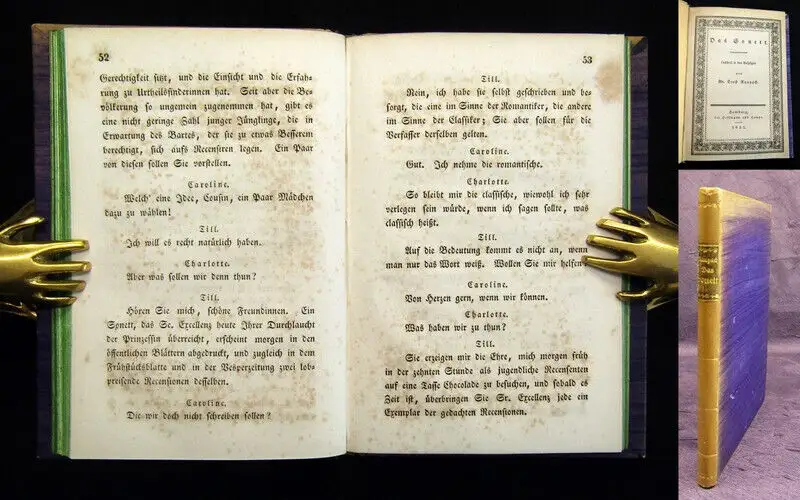 52
Gerechtigkeit sitzt, und die Einsicht und die Erfah-
rung zu Urtheilsfinderinnen hat. Seit aber die Be-
völkerung so ungemein zugenommen hat, gibt es
eine nicht geringe Zahl junger Jünglinge, die in
Erwartung des Bartes, der sie zu etwas Besserem
berechtigt, sich aufs Recensiren legen. Ein Paar
von diesen sollen Sie vorstellen.
Caroline.
Welch' eine Idee, Cousin, ein Paar Mädchen
dazu zu wählen!
Till.
Ich will es recht natürlich haben.
Charlotte.
Aber was sollen wir denn thun?
Till.
Hören Sie mich, schöne Freundinnen. Ein
Sonett, das Se. Excellenz heute Ihrer Durchlaucht
der Prinzessin überreicht, erscheint morgen in den
öffentlichen Blättern abgedruckt, und zugleich in dem
Frühstücksblatte und in der Vesperzeitung zwei lob-
preisende Recensionen desselben.
Caroline.
Die wir doch nicht schreiben sollen?
53
Till.
Nein, ich habe sie selbst geschrieben und be-
sorgt, die eine im Sinne der Romantiker, die andere
im Sinne der Classiker; Sie aber sollen für die
Verfasser derselben gelten.
Caroline.
Gut. Ich nehme die romantische.
Charlotte.
So bleibt mir die classische, wiewohl ich sehr
verlegen sein würde, wenn ich sagen sollte, was
classisch heißt.
Till.
Auf die Bedeutung kommt es nicht an, wenn
man nur das Wort weiß. Wollen Sie mir helfen?
Caroline.
Von Herzen gern, wenn wir können.
Charlotte.
Was haben wir zu thun?
Till.
Sie erzeigen mir die Ehre, mich morgen früh
in der zehnten Stunde als jugendliche Recensenten
auf eine Tasse Chocolade zu besuchen, und sobald es
Zeit ist, überbringen Sie Sr. Excellenz jede ein
Exemplar der gedachten Recensionen.
Das Sonett.
Lustspiel in drei Aufzügen
von
Dr. Ernst Raupach.
Hamburg,
bei Hoffmann und Campe.
1833.
Raupach
Das
Sonett